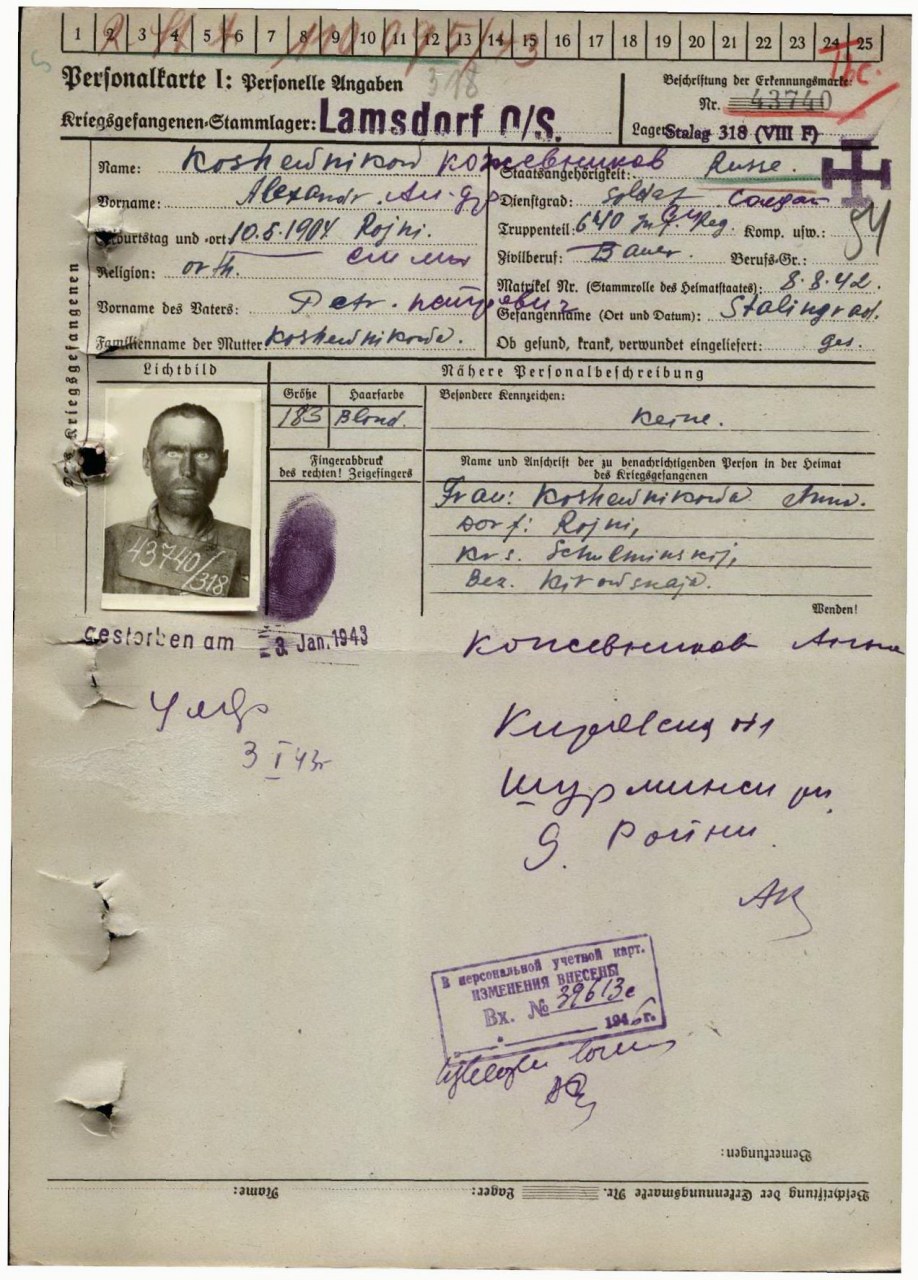 1 2 3 4 5 6 7 8 9 10 11 12 13 14 15 16 17 18 19 20 21 22 23 24 25
Tbc.
Personalkarte I: Personelle Angaben
318
Beschriftung der Erkennungsmarke:
Nr. 43740
Kriegsgefangenen-Stammlager: Lamsdorf O/S.
Lager: Stalag 318 (VIII F)
Des Kriegsgefangenen
Name: Koshewnikow Кожевников
Staatsangehörigkeit: Russe.
Vorname: Alexandr.
Dienstgrad: Soldat Солдат
Geburtstag und -ort: 10.5.1904 Rojni.
Truppenteil: 640 Inf. Reg. Komp. usw.:
Religion: orth.
Zivilberuf: Bauer Berufs-Gr.:
Matrikel Nr. (Stammrolle des Heimatstaates): 8.8.42.
Vorname des Vaters: Petr. Петрович
Gefangennahme (Ort und Datum): Stalingrad.
Familienname der Mutter: Koshewnikowa.
Ob gesund, krank, verwundet eingeliefert: ges.
Lichtbild
Nähere Personalbeschreibung
Größe Haarfarbe Besondere Kennzeichen:
183 Blond. Keine.
Fingerabdruck
des rechten! Zeigefingers
Name und Anschrift der zu benachrichtigenden Person in der Heimat
des Kriegsgefangenen
Frau: Koshewnikowa Anna.
Dorf: Rojni,
Krs. Schulminskij,
Bez. Kirowskaja.
43740/
318
Wenden!
Gestorben am 3. Jan. 1943
Кожевникова Анна
Умер
3 I 43г
Кировская
Шурминск
д. Ройни
В персональной учетной карт.
ИЗМЕНЕНИЯ ВНЕСЕНЫ
Вх. № 39613с
194 г.
Bemerkungen:
Name: Lager: Beschriftung der Erkennungsmarke Nr.